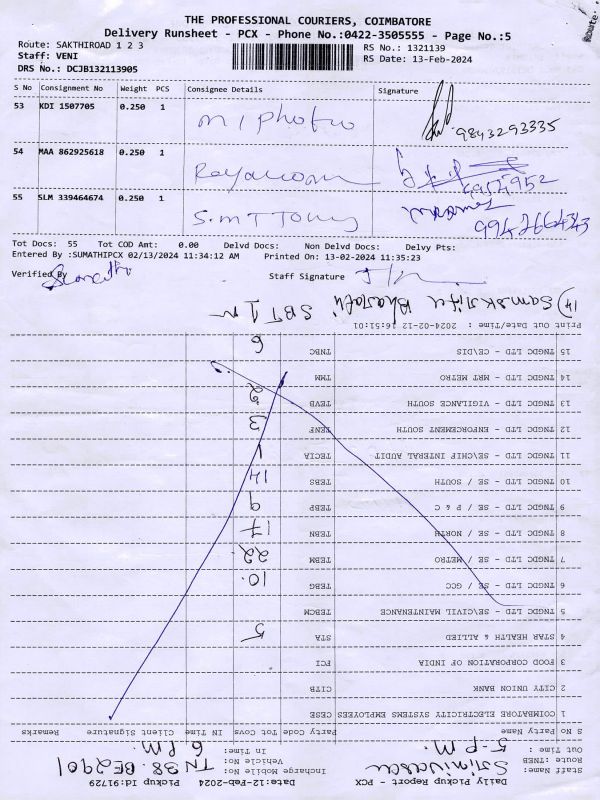 THE PROFESSIONAL COURIERS, COIMBATORE
Delivery Runsheet - PCX - Phone No.:0422-3505555 - Page No.:5
Route: SAKTHIROAD 1 2 3 RS No.: 1321139
Staff: VENI RS Date: 13-Feb-2024
DRS No.: DCJB132113905
S No Consignment No Weight PCS Consignee Details Signature
53 KDI 1507705 0.250 1 9843293335
54 MAA 862925618 0.250 1
55 SLM 339464674 0.250 1
Tot Docs: 55 Tot COD Amt: 0.00 Delvd Docs: Non Delvd Docs: Delvy Pts:
Entered By :SUMATHIPCX 02/13/2024 11:34:12 AM Printed On: 13-02-2024 11:35:23
Verified By Staff Signature
Daily Pickup Report - PCX Date:12-Feb-2024 Pickup Id:91729
Staff Name: Srinivasan Incharge Mobile No:
Route: TNEB Vehicle No: TN 38. BE2901
Out Time : 5-P.M. In Time: 6 P.M.
S No Party Name Party Code Tot Covs Time IN Client Signature Remarks
1 COIMBATORE ELECTRICITY SYSTEMS EMPLOYEES CESE
2 CITY UNION BANK CITB
3 FOOD CORPORATION OF INDIA FCI
4 STAR HEALTH & ALLIED STA 5
5 TNGDC LTD - SE/CIVIL MAINTENANCE TEBCM
6 TNGDC LTD - SE / GCC TEBG 10.
7 TNGDC LTD - SE / METRO TEBM 22.
8 TNGDC LTD - SE / NORTH TEBN 17
9 TNGDC LTD - SE / P & C TEBP 9
10 TNGDC LTD - SE / SOUTH TEBS 14
11 TNGDC LTD - SE/CHIF INTERAL AUDIT TECIA 1
12 TNGDC LTD - ENFORCEMENT SOUTH TENF 3
13 TNGDC LTD - VIGILANCE SOUTH TEVB 2
14 TNGDC LTD - MRT METRO TMM
15 TNGDC LTD - CE/DIS TNBC 6
Print Out Date/Time : 2024-02-12 16:51:01